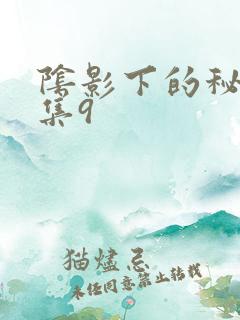 阴影下的秘
集9
猫烬忌
未经同意禁止转载